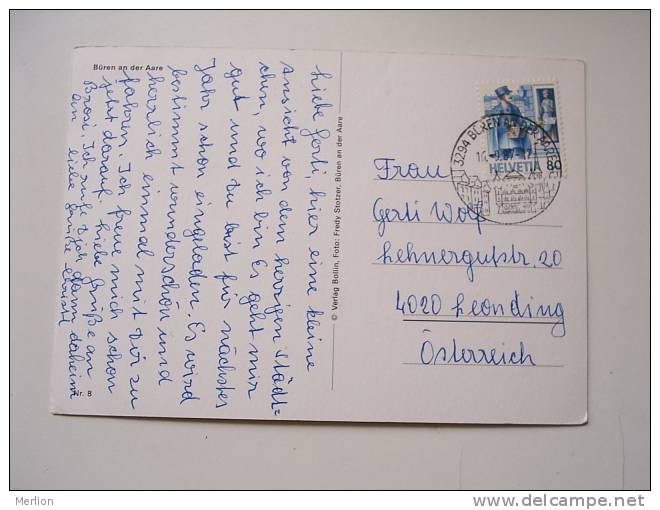 Büren an der Aare
Liebe Gerti, hier eine kleine
Ansicht von dem herzigen Städt=
chen, wo ich bin. Es geht mir
gut und du bist für nächstes
Jahr schon eingeladen. Es wird
bestimmt wunderschön und
herrlich einmal mit dir zu
fahren. Ich freue mich schon
jetzt darauf. Liebe Grüße an
Brosi. Ich rufe dich dann daheim
an. Liebe Grüße Christl
Nr. 8
© Verlag Bollin, Foto: Fredy Stotzer, Büren an der Aare
3294 BÜREN AN DER AARE
HELVETIA 80
Frau
Gerti Wolf
Lehnergutstr. 20
4020 Leonding
Österreich
Merlion
www.delcampe.net